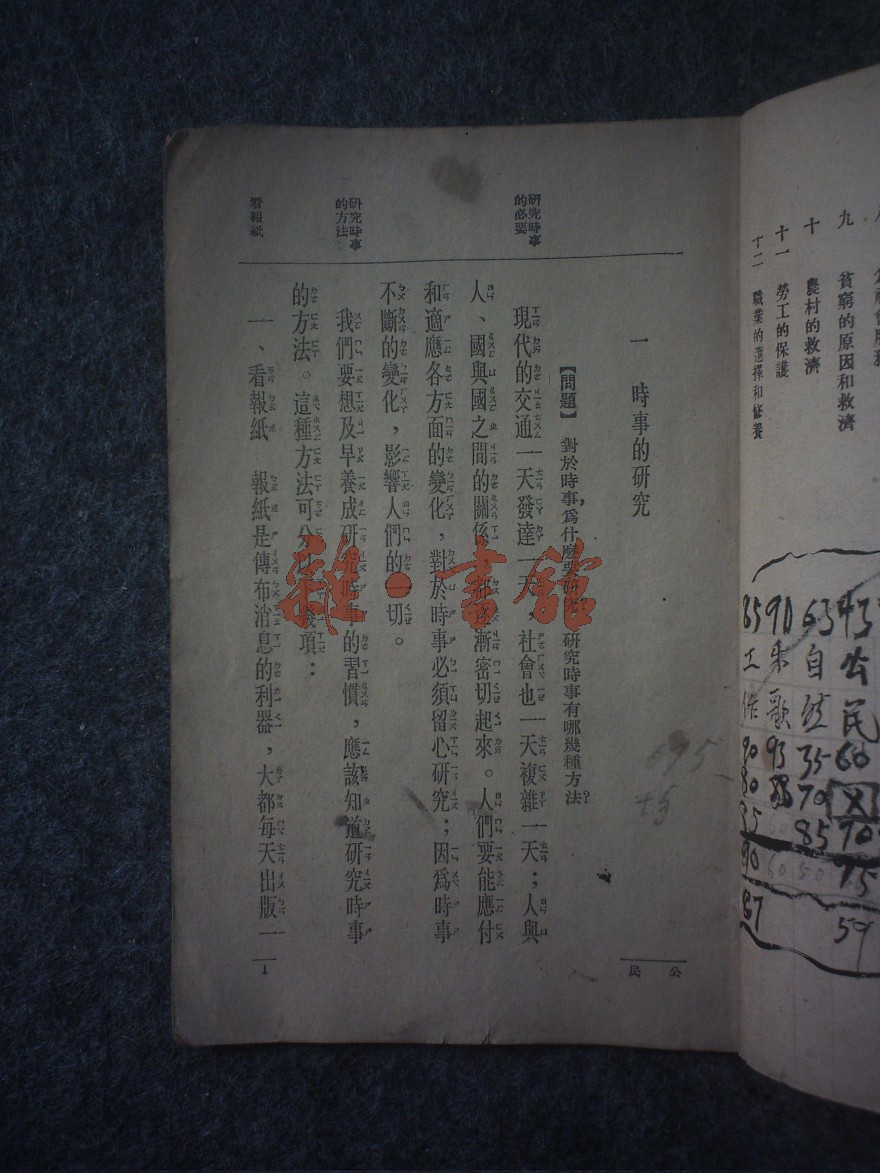 九 貧窮的原因和救濟
十 農村的救濟
十一 勞工的保護
十二 職業的選擇和修養
43 公民 60 70 75 59
63 自然 35 70 85
91 唱歌 93
85 工作 90 80 85 90 87
公民
一 時事的研究
【問題】 對於時事,爲什麼要研究?研究時事有哪幾種方法?
695
+5
研究時事
的必要
現代的交通一天發達一天,社會也一天複雜一天;人與
人、國與國之間的關係,都漸漸密切起來。人們要能應付
和適應各方面的變化,對於時事必須留心研究;因爲時事
不斷的變化,影響人們的一切。
研究時事
的方法
我們要想及早養成研究時事的習慣,應該知道研究時事
的方法。這種方法可分以 幾項:
看報紙
一、看報紙 報紙是傳布消息的利器,大都每天出版一
1
雜·書館